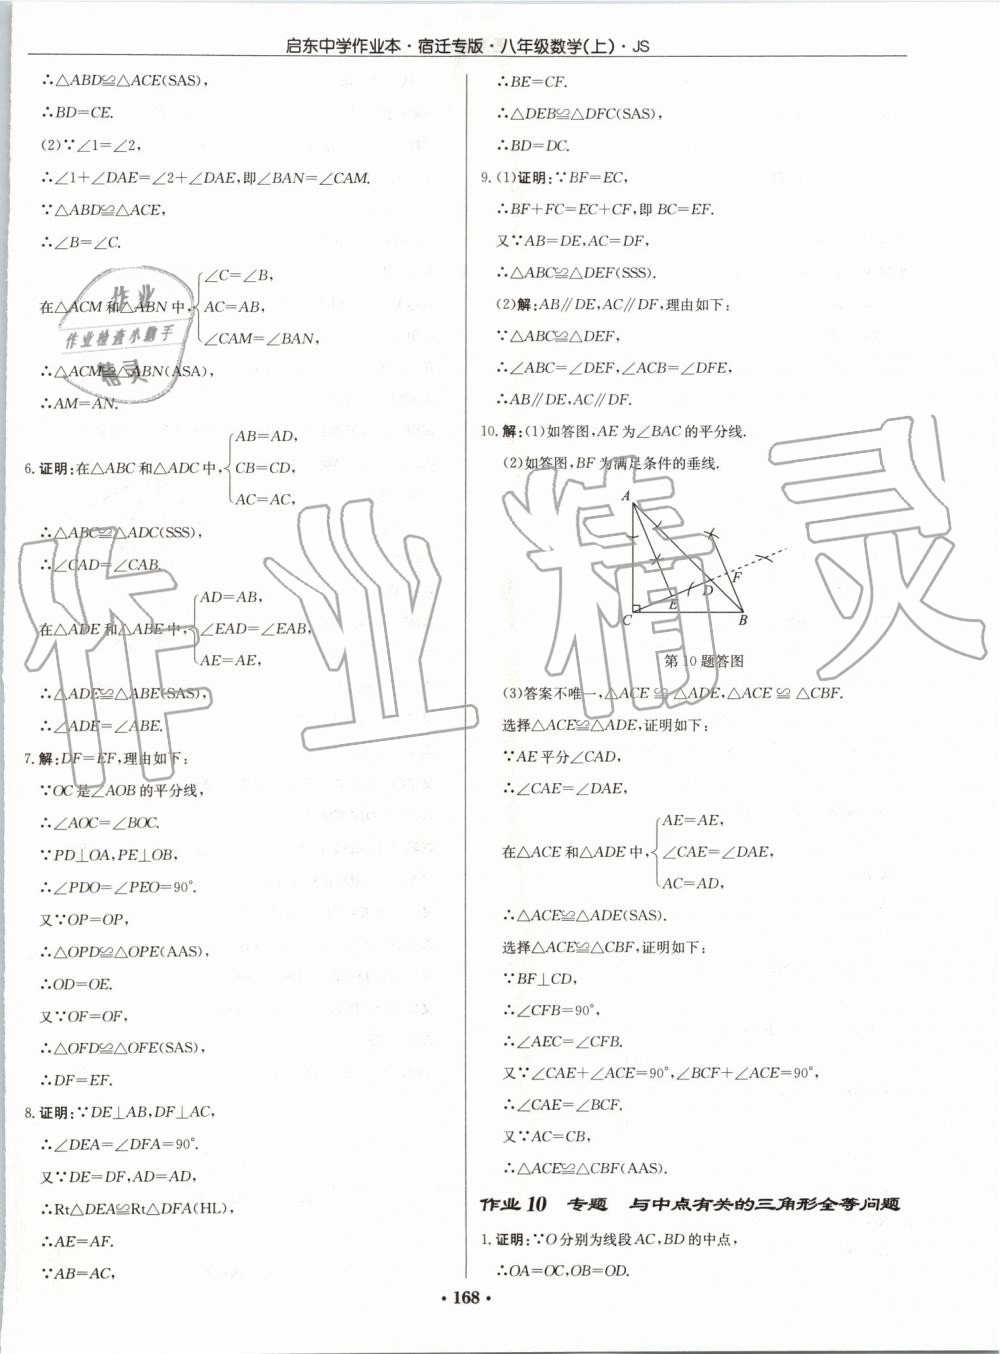 启东中学作业本·宿迁专版·八年级数学(上)·JS
∴△ABD≌△ACE(SAS),
∴BD=CE.
(2)∵∠1=∠2,
∴∠1+∠DAE=∠2+∠DAE,即∠BAN=∠CAM.
∵△ABD≌△ACE,
∴∠B=∠C.
∠C=∠B,
在△ACM和△ABN中, AC=AB,
∠CAM=∠BAN,
∴△ACM≌△ABN(ASA),
∴AM=AN.
AB=AD,
6.证明:在△ABC和△ADC中, CB=CD,
AC=AC,
∴△ABC≌△ADC(SSS),
∴∠CAD=∠CAB.
AD=AB,
在△ADE和△ABE中, ∠EAD=∠EAB,
AE=AE,
∴△ADE≌△ABE(SAS),
∴∠ADE=∠ABE.
7.解:DF=EF,理由如下:
∵OC是∠AOB的平分线,
∴∠AOC=∠BOC.
∵PD⊥OA,PE⊥OB,
∴∠PDO=∠PEO=90°.
又∵OP=OP,
∴△OPD≌△OPE(AAS),
∴OD=OE.
又∵OF=OF,
∴△OFD≌△OFE(SAS),
∴DF=EF.
8.证明:∵DE⊥AB,DF⊥AC,
∴∠DEA=∠DFA=90°.
又∵DE=DF,AD=AD,
∴Rt△DEA≌Rt△DFA(HL),
∴AE=AF.
∵AB=AC,
∴BE=CF.
∴△DEB≌△DFC(SAS),
∴BD=DC.
9.(1)证明:∵BF=EC,
∴BF+FC=EC+CF,即BC=EF.
又∵AB=DE,AC=DF,
∴△ABC≌△DEF(SSS).
(2)解:AB∥DE,AC∥DF,理由如下:
∵△ABC≌△DEF,
∴∠ABC=∠DEF,∠ACB=∠DFE,
∴AB∥DE,AC∥DF.
10.解:(1)如答图,AE为∠BAC的平分线.
(2)如答图,BF为满足条件的垂线.
A
F
D
E
C
B
第10题答图
(3)答案不唯一,△ACE≌△ADE,△ACE≌△CBF.
选择△ACE≌△ADE,证明如下:
∵AE平分∠CAD,
∴∠CAE=∠DAE,
AE=AE,
在△ACE和△ADE中, ∠CAE=∠DAE,
AC=AD,
∴△ACE≌△ADE(SAS).
选择△ACE≌△CBF,证明如下:
∵BF⊥CD,
∴∠CFB=90°,
∴∠AEC=∠CFB.
又∵∠CAE+∠ACE=90°,∠BCF+∠ACE=90°,
∴∠CAE=∠BCF.
又∵AC=CB,
∴△ACE≌△CBF(AAS).
作业10 专题 与中点有关的三角形全等问题
1.证明:∵O分别为线段AC,BD的中点,
∴OA=OC,OB=OD.
·168·
作业
作业检查小助手
精灵
作业精灵